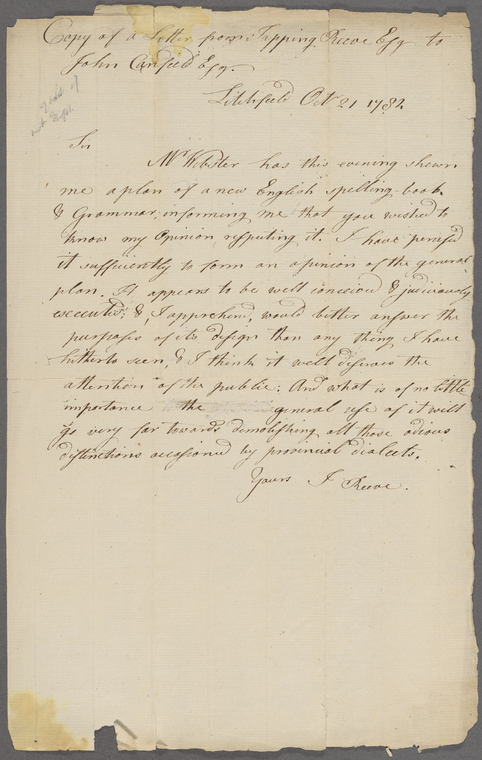 Copy of a Letter from Tapping Reeve Esq to
John Canfield Esq.
Litchfield Oct 21 1782
Sir
Mr Webster has this evening shewn
me a plan of a new English spelling-book
& Grammar, informing me that you wished to
know my Opinion respecting it. I have perused
it sufficiently to form an opinion of the general
plan. It appears to be well conceived & judiciously
executed: &, I apprehend, would better answer the
purposes of its design than any thing I have
hitherto seen, & I think it well deserves the
attention of the public; And what is of no little
importance the general use of it will
go very far towards demolishing all those odious
distinctions occasioned by provincial dialects.
Yours T Reeve.